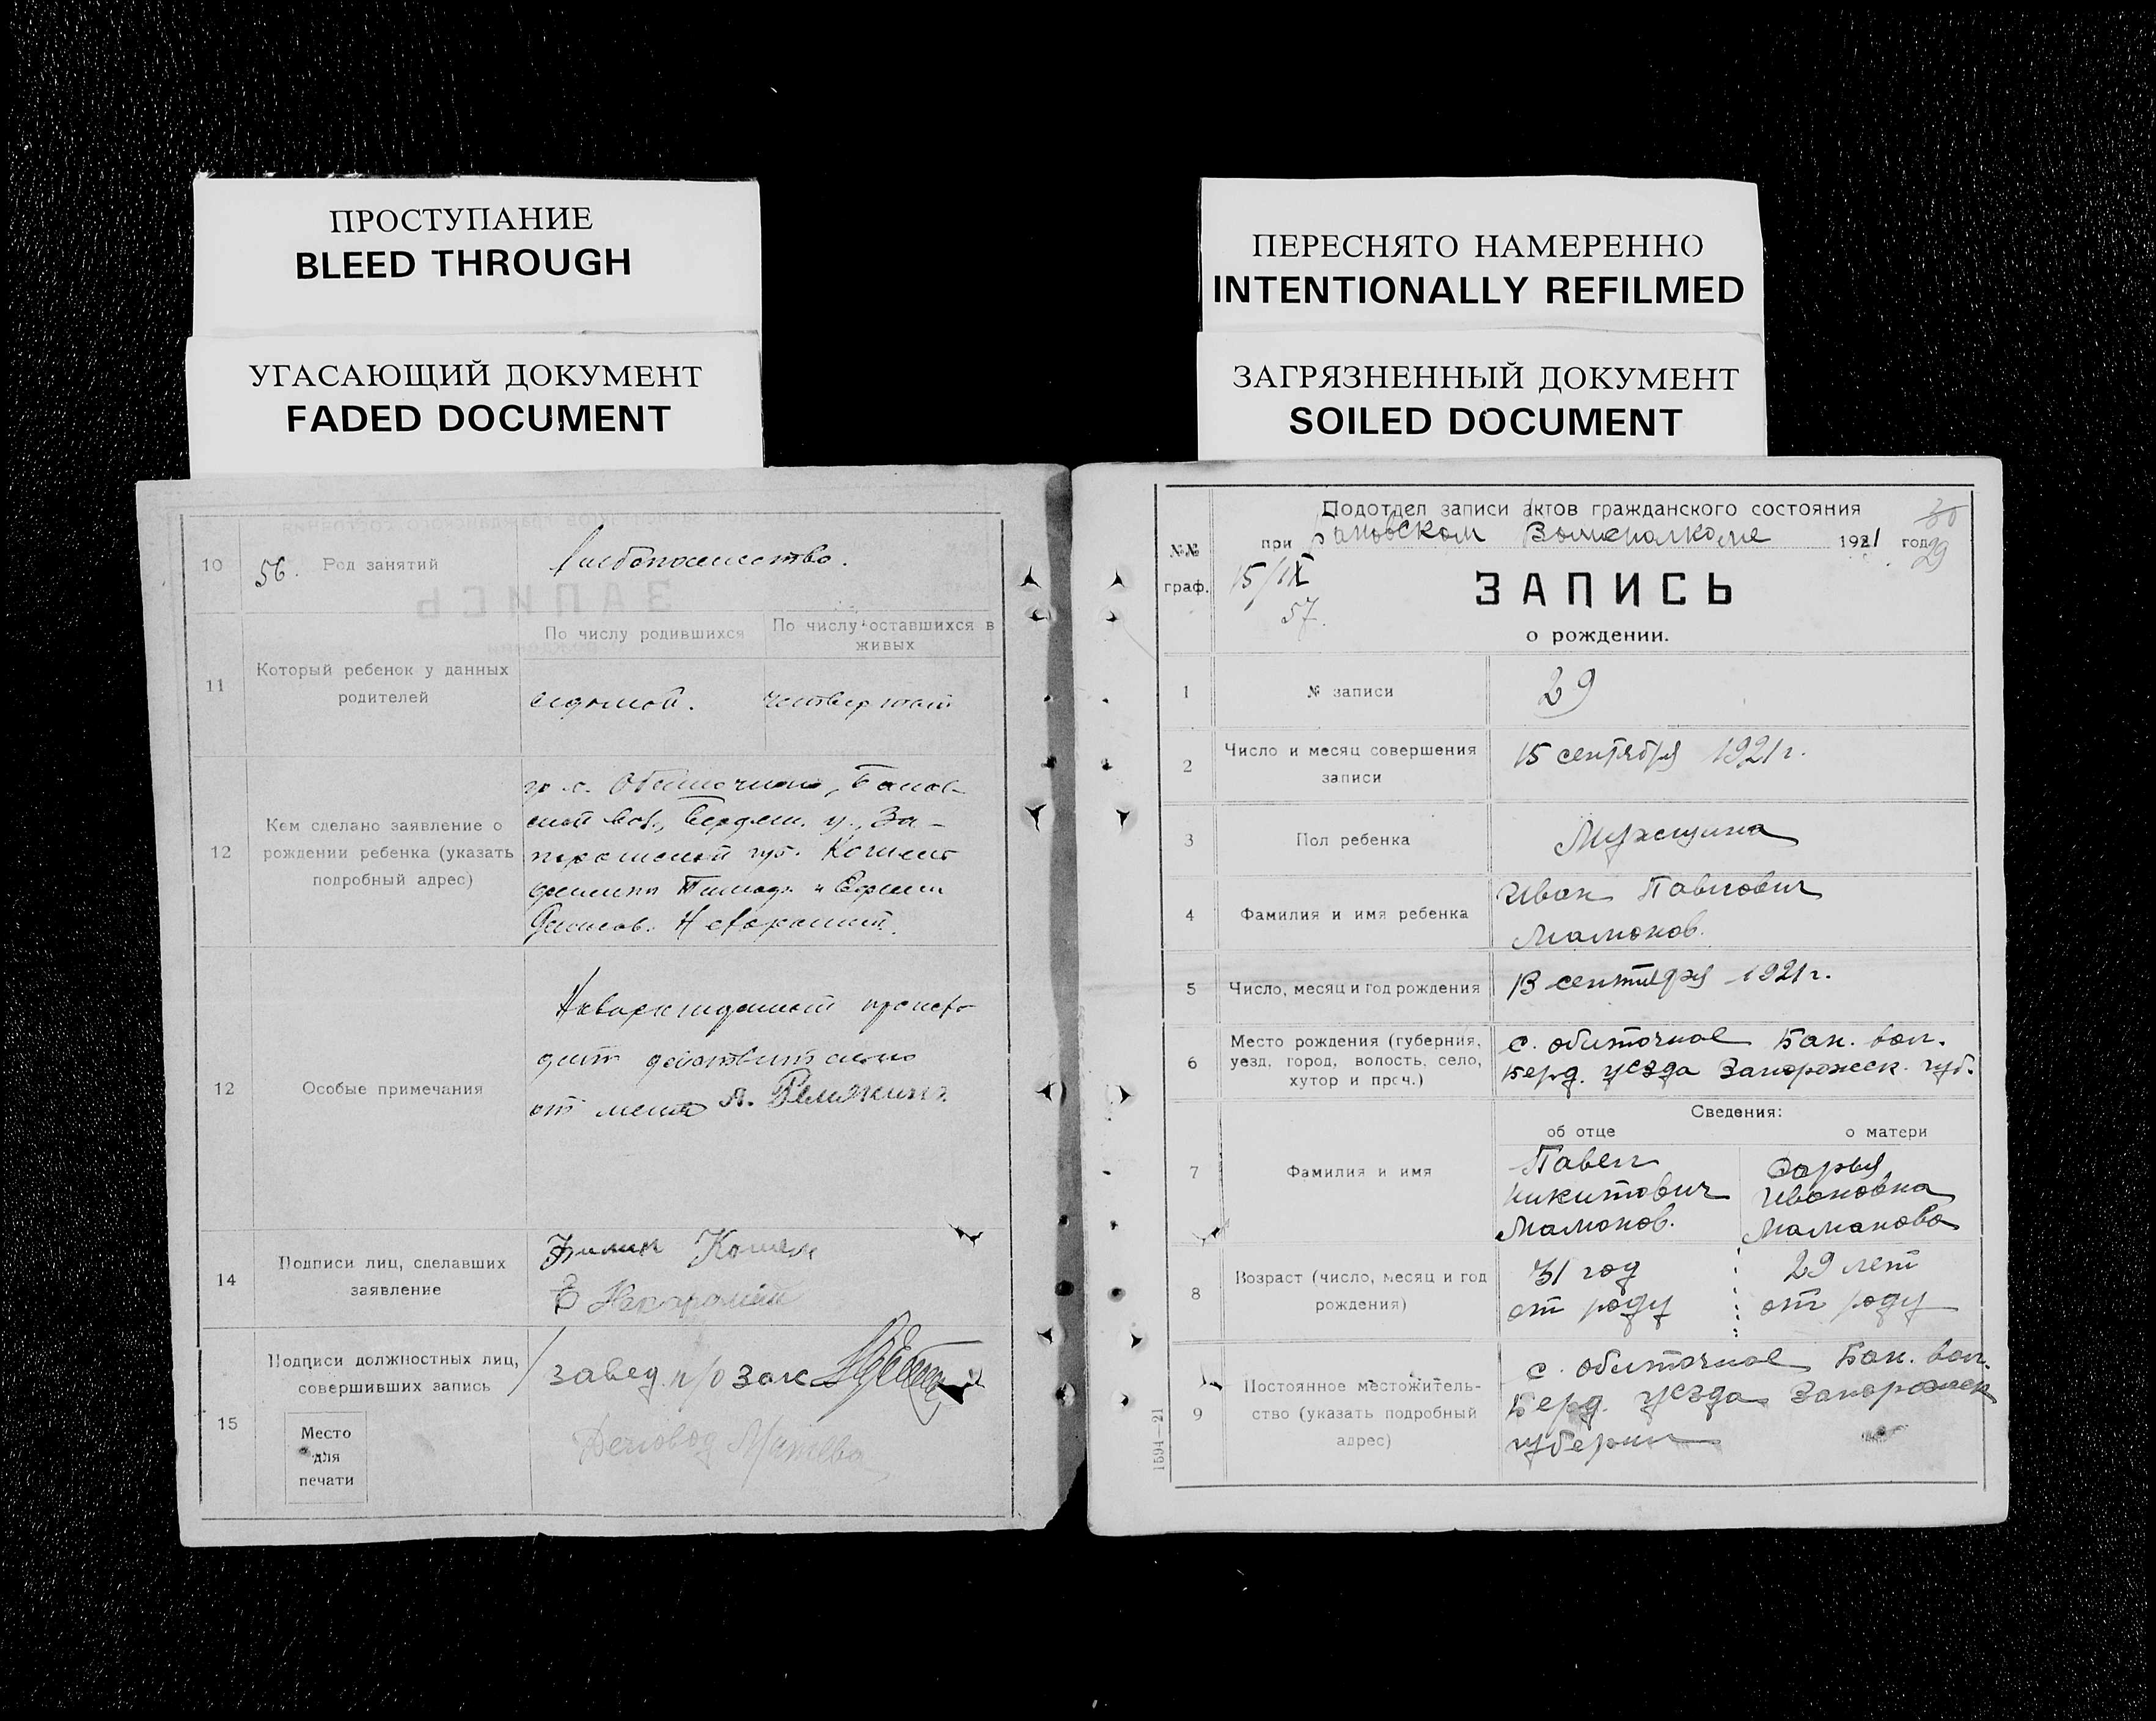 ПРОСТУПАНИЕ
BLEED THROUGH
УГАСАЮЩИЙ ДОКУМЕНТ
FADED DOCUMENT
ПЕРЕСНЯТО НАМЕРЕННО
INTENTIONALLY REFILMED
ЗАГРЯЗНЕННЫЙ ДОКУМЕНТ
SOILED DOCUMENT
10
56.
Род занятий
11
Который ребенок у данных
родителей
По числу родившихся
седьмой.
По числу оставшихся в
живых
четвертый
12
Кем сделано заявление о
рождении ребенка (указать
подробный адрес)
гр. с. Обиточного, Банов-
ской вол., Бердян. у., За-
порожской губ.
12
Особые примечания
действительно
от меня
14
Подписи лиц, сделавших
заявление
15
Подписи должностных лиц,
совершивших запись
завед. п/о
Деловод
Место
для
печати
Подотдел записи актов гражданского состояния
при Бановском Волисполкоме 1921 год
30
29
№№
граф.
15/IX
57.
ЗАПИСЬ
о рождении.
1
№ записи
29
2
Число и месяц совершения
записи
15 сентября 1921 г.
3
Пол ребенка
Мужчина
4
Фамилия и имя ребенка
Иван Павлович
Мамонов.
5
Число, месяц и год рождения
13 сентября 1921 г.
6
Место рождения (губерния,
уезд, город, волость, село,
хутор и проч.)
с. обиточное Бан. вол.
Берд. уезда Запорожск. губ.
Сведения:
об отце
о матери
7
Фамилия и имя
Павел
Никитович
Мамонов.
Дарья
Ивановна
Маманова
8
Возраст (число, месяц и год
рождения)
31 год
от роду
29 лет
от роду
9
Постоянное местожитель-
ство (указать подробный
адрес)
с. обиточное Бан. вол.
Берд. уезда Запорожск
губернии
1594—21